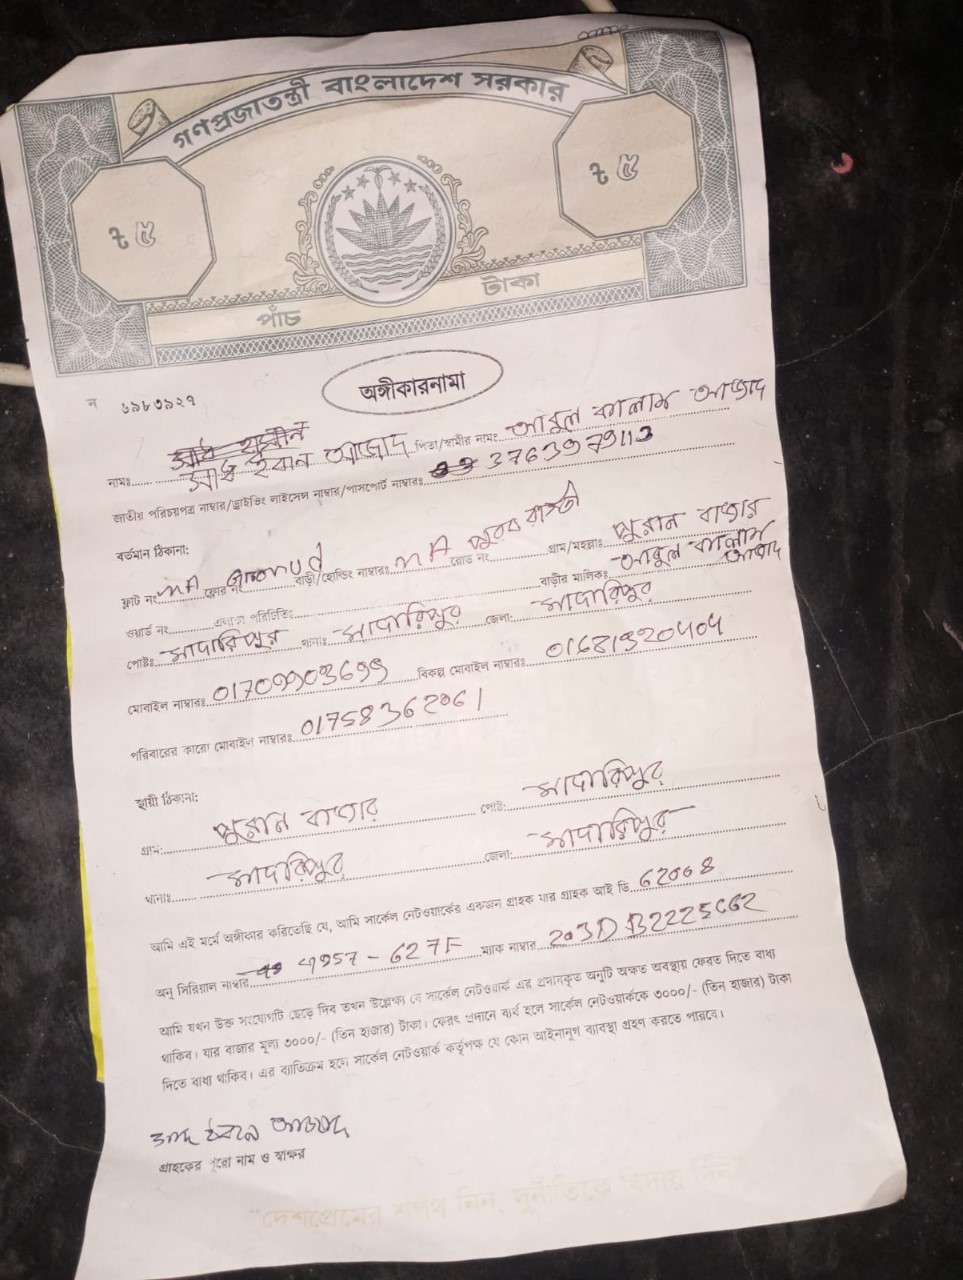 গণপ্রজাতন্ত্রী বাংলাদেশ সরকার
৳ ৫ ৳ ৫
পাঁচ টাকা
অঙ্গীকারনামা
ন ৬৯৮৩৯২৭
নামঃ সাদ ইবনে আজাদ পিতা/স্বামীর নামঃ আবুল কালাম আজাদ
জাতীয় পরিচয়পত্র নাম্বার/ড্রাইভিং লাইসেন্স নাম্বার/পাসপোর্ট নাম্বারঃ 3763979113
বর্তমান ঠিকানা:
ফ্লাট নং NA ফ্লোর নং বাড়ী/হোল্ডিং নাম্বারঃ NA রোড নং গ্রাম/মহল্লাঃ পুরান বাজার
ওয়ার্ড নং এলাকা পরিচিতি: বাড়ীর মালিকঃ আবুল কালাম আজাদ
পোষ্টঃ মাদারিপুর থানাঃ মাদারিপুর জেলা: মাদারিপুর
মোবাইল নাম্বারঃ 01709903699 বিকল্প মোবাইল নাম্বারঃ
পরিবারের কারো মোবাইল নাম্বারঃ 01758362061
স্থায়ী ঠিকানা:
গ্রাম: পুরান বাজার পোষ্ট: মাদারিপুর
থানাঃ মাদারিপুর জেলা: মাদারিপুর
আমি এই মর্মে অঙ্গীকার করিতেছি যে, আমি সার্কেল নেটওয়ার্কের একজন গ্রাহক যার গ্রাহক আই ডি 62068
অনু সিরিয়াল নাম্বার ম্যাক নাম্বার
আমি যখন উক্ত সংযোগটি ছেড়ে দিব তখন উল্লেক্ষ্য যে সার্কেল নেটওয়ার্ক এর প্রদানকৃত অনুটি অক্ষত অবস্থায় ফেরত দিতে বাধ্য
থাকিব। যার বাজার মূল্য ৩০০০/- (তিন হাজার) টাকা। ফেরৎ প্রদানে ব্যর্থ হলে সার্কেল নেটওয়ার্ককে ৩০০০/- (তিন হাজার) টাকা
দিতে বাধ্য থাকিব। এর ব্যতিক্রম হলে সার্কেল নেটওয়ার্ক কর্তৃপক্ষ যে কোন আইনানুগ ব্যবস্থা গ্রহণ করতে পারবে।
সাদ ইবনে আজাদ
গ্রাহকের পুরো নাম ও স্বাক্ষর
"দেশপ্রেমের শপথ নিন, দুর্নীতিকে বিদায় দিন"